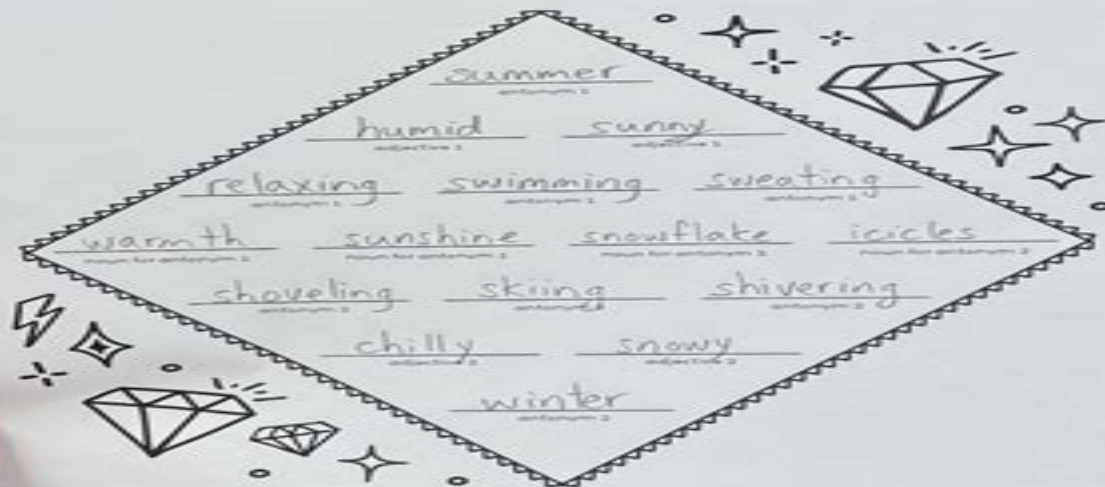 summer
antonym 1
humid sunny
adjective 1 adjective 1
relaxing swimming sweating
antonym 1 antonym 1 antonym 1
warmth sunshine snowflake icicles
noun for antonym 1 noun for antonym 1 noun for antonym 2 noun for antonym 2
shoveling skiing shivering
antonym 2 antonym 2 antonym 2
chilly snowy
adjective 2 adjective 2
winter
antonym 2